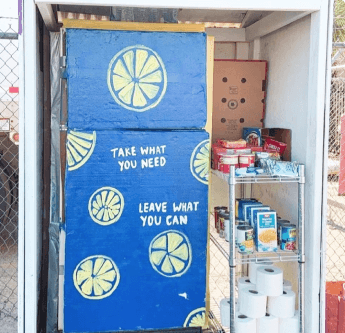 TAKE WHAT
YOU NEED
LEAVE WHAT
YOU CAN